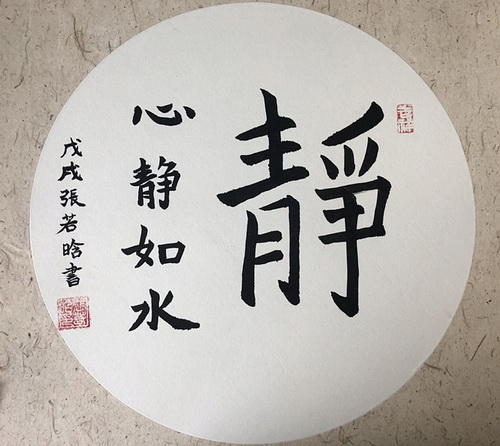 靜
心静如水
戊戌張若晗書